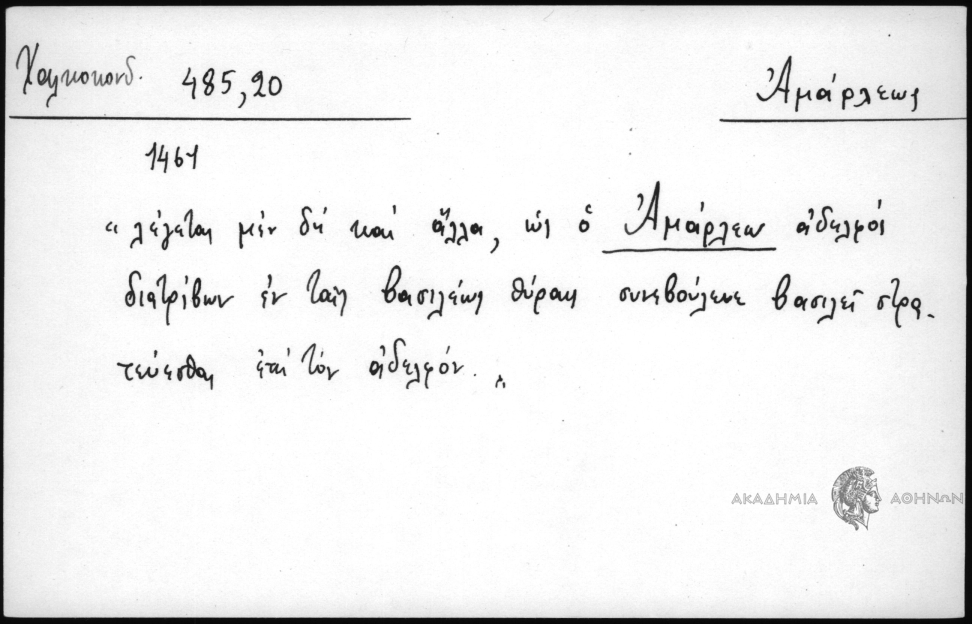 Χαλκοκονδ. 485,20 Ἀμάρλεως
1461
« λέγεται μὲν δὴ καὶ ἄλλα, ὡς ὁ Ἀμάρλεω ἀδελφὸς
διατρίβων ἐν ταῖς βασιλέως θύραις συνεβούλευε βασιλεῖ στρα-
τεύεσθαι ἐπὶ τὸν ἀδελφόν. »
ΑΚΑΔΗΜΙΑ ΑΘΗΝΩΝ